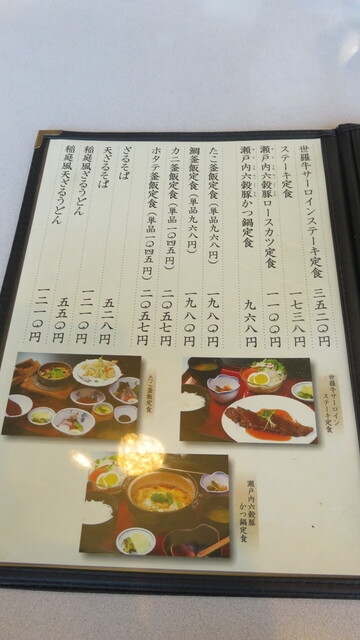 世羅牛サーロインステーキ定食 三五二〇円
ステーキ定食 一七三八円
瀬戸内六穀豚ロースカツ定食 一一〇〇円
瀬戸内六穀豚かつ鍋定食 九六八円
たこ釜飯定食(単品九六八円) 一九八〇円
鯛釜飯定食(単品九六八円) 一九八〇円
カニ釜飯定食(単品一〇四五円) 二〇五七円
ホタテ釜飯定食(単品一〇四五円) 二〇五七円
ざるそば 五二八円
天ざるそば 一二一〇円
稲庭風ざるうどん 五五〇円
稲庭風天ざるうどん 一二一〇円
世羅牛サーロイン
ステーキ定食
たこ釜飯定食
瀬戸内六穀豚
かつ鍋定食